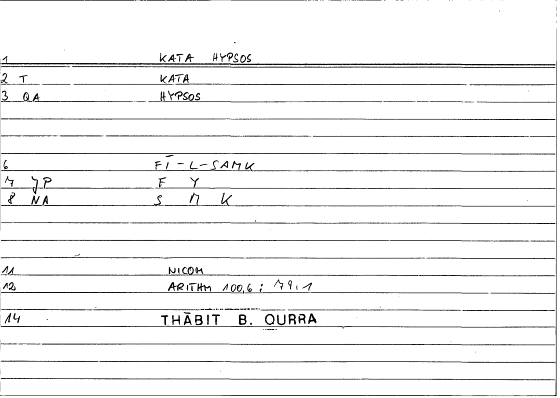 1 KATA HYPSOS
2 T KATA
3 QA HYPSOS
6 FĪ-L-SAMK
7 JP F Y
8 NA S M K
11 NICOM
12 ARITHM 100,6 : 79,1
14 THĀBIT B. QURRA